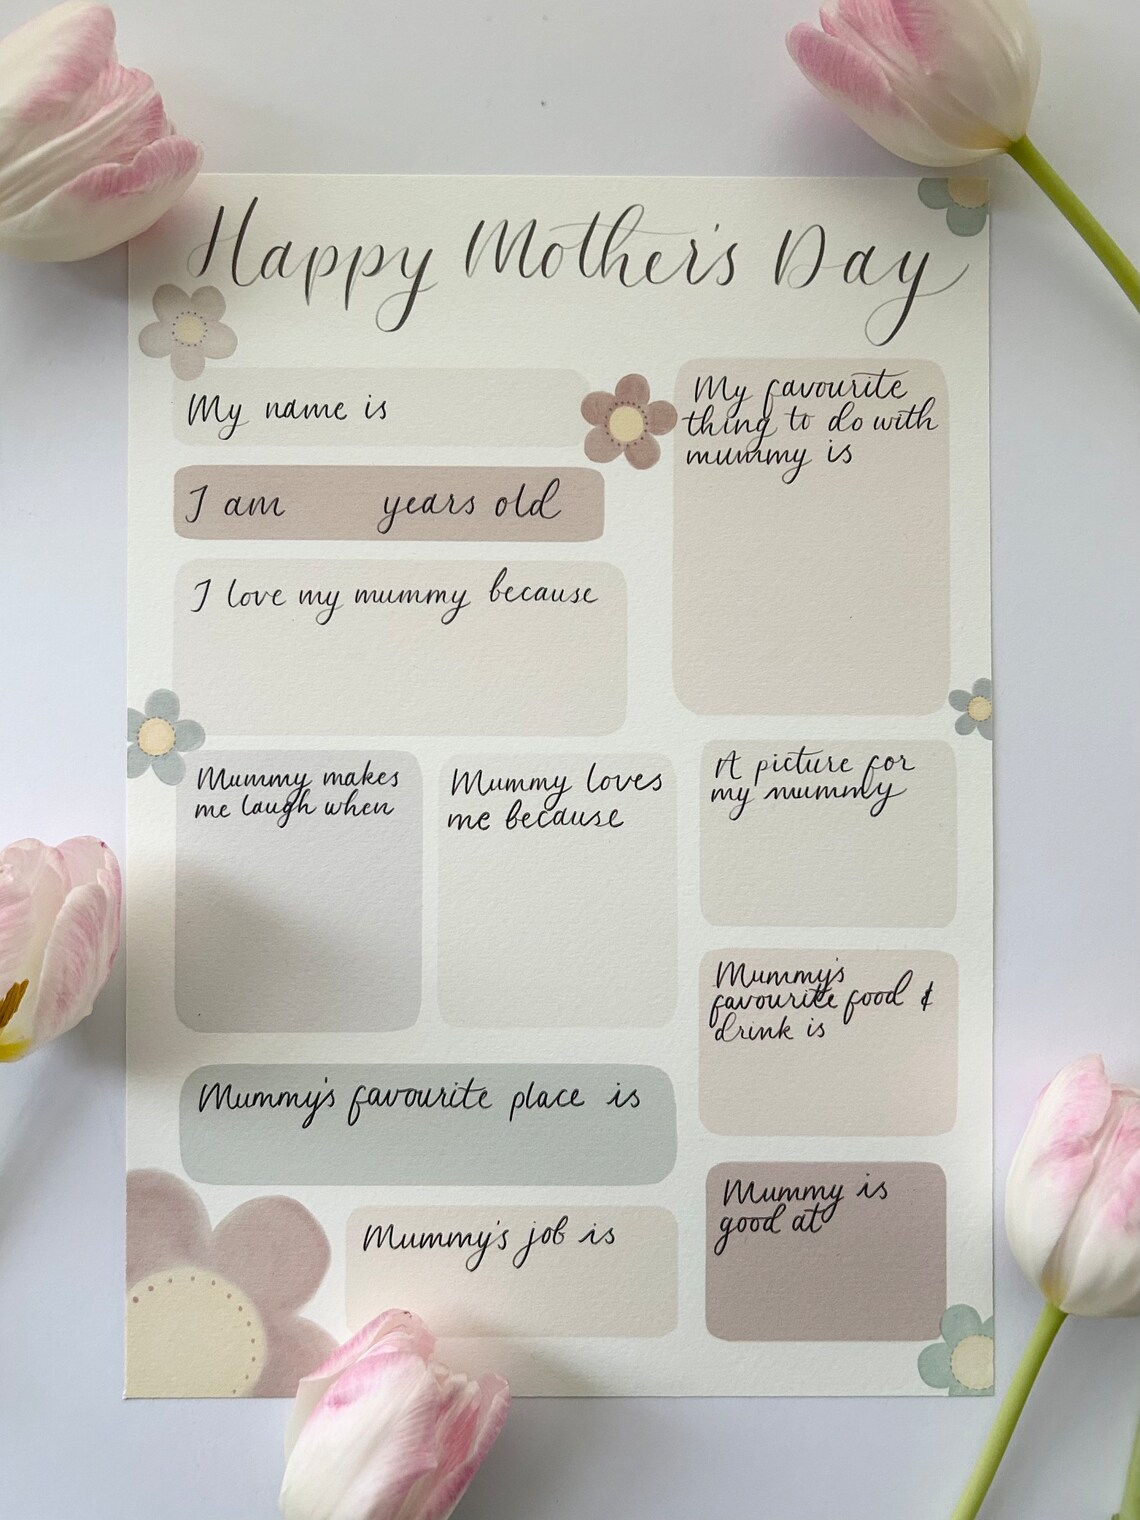 Happy Mother's Day
My name is
I am years old
I love my mummy because
My favourite
thing to do with
mummy is
Mummy makes
me laugh when
Mummy loves
me because
A picture for
my mummy
Mummy's
favourite food &
drink is
Mummy's favourite place is
Mummy's job is
Mummy is
good at